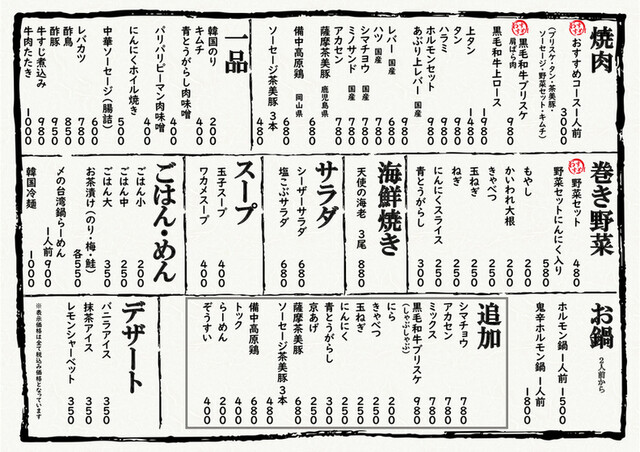 焼肉
おすすめコース1人前 300
(ブリスケ・タン・茶美豚・
ソーセージ・野菜セット・キムチ)
黒毛和牛ブリスケ 980
肩ばら肉
黒毛和牛上ロース 1980
上タン 1480
タン 980
ハラミ 980
ホルモンセット 980
あぶり上レバー 国産 980
レバー 国産 680
ハツ 国産 680
シマチョウ 国産 780
ミノサンド 国産 780
アカセン 780
薩摩茶美豚 鹿児島県 780
備中高原鶏 岡山県 680
ソーセージ茶美豚3本 480
一品
韓国のり 200
キムチ 400
青とうがらし肉味噌 400
パリパリピーマン肉味噌 400
にんにくホイル焼き 500
中華ソーセージ(腸詰) 600
レバカツ 780
酢鳥 850
酢豚 950
牛すじ煮込み 980
牛肉たたき 1000
巻き野菜
野菜セット 480
野菜セットにんにく入り 580
もやし 200
かいわれ大根 200
きゃべつ 250
玉ねぎ 250
ねぎ 250
にんにくスライス 250
青とうがらし 300
海鮮焼き
天使の海老 3尾 880
サラダ
シーザーサラダ 680
塩こぶサラダ 680
スープ
玉子スープ 400
ワカメスープ 400
ごはん・めん
ごはん小 200
ごはん中 250
ごはん大 350
お茶漬け(のり・梅・鮭)
各550
〆の台湾鍋らーめん
1人前 900
韓国冷麺 1000
お鍋 2人前から
ホルモン鍋 1人前 1500
鬼辛ホルモン鍋 1人前
1800
追加
シマチョウ 780
アカセン 780
ミックス 780
黒毛和牛ブリスケ 980
(しゃぶしゃぶ)
にら 200
きゃべつ 250
玉ねぎ 250
にんにく 250
青とうがらし 300
京あげ 250
薩摩茶美豚 680
ソーセージ茶美豚3本 480
備中高原鶏 680
トック 400
らーめん 200
ぞうすい 400
デザート
バニラアイス 350
抹茶アイス 350
レモンシャーベット 350
※表示価格は全て税込み価格となっています